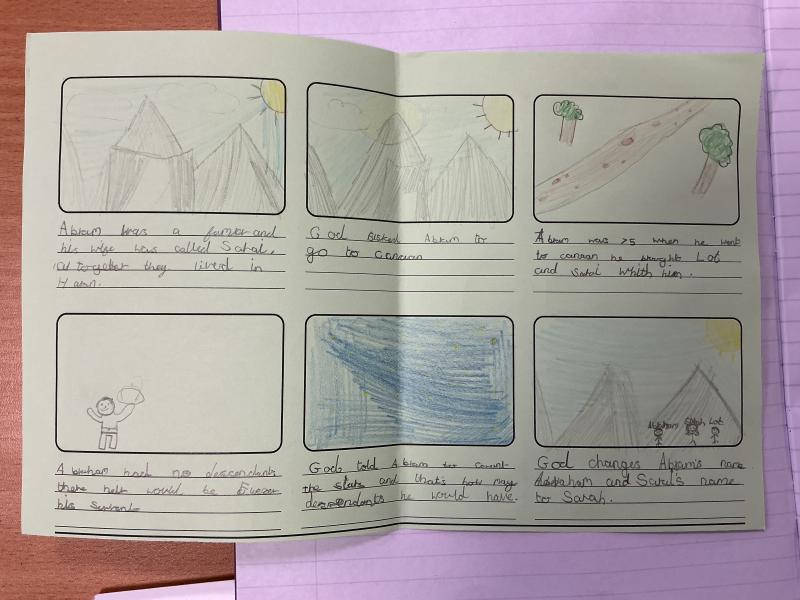 Abram was a farmer and
his wife was called Sarai.
together they lived in
Haran.
God asked Abram to
go to canaan
Abram was 75 when he went
to canaan he brought Lot
and Sarai whith him.
Abraham had no descendants
there heir would be Eliezer
his servant
God told Abram to count
the stars and that's how many
descendants he would have.
Abraham Sarah Lot
God changes Abram's name
Abraham and Sarai's name
to Sarah.